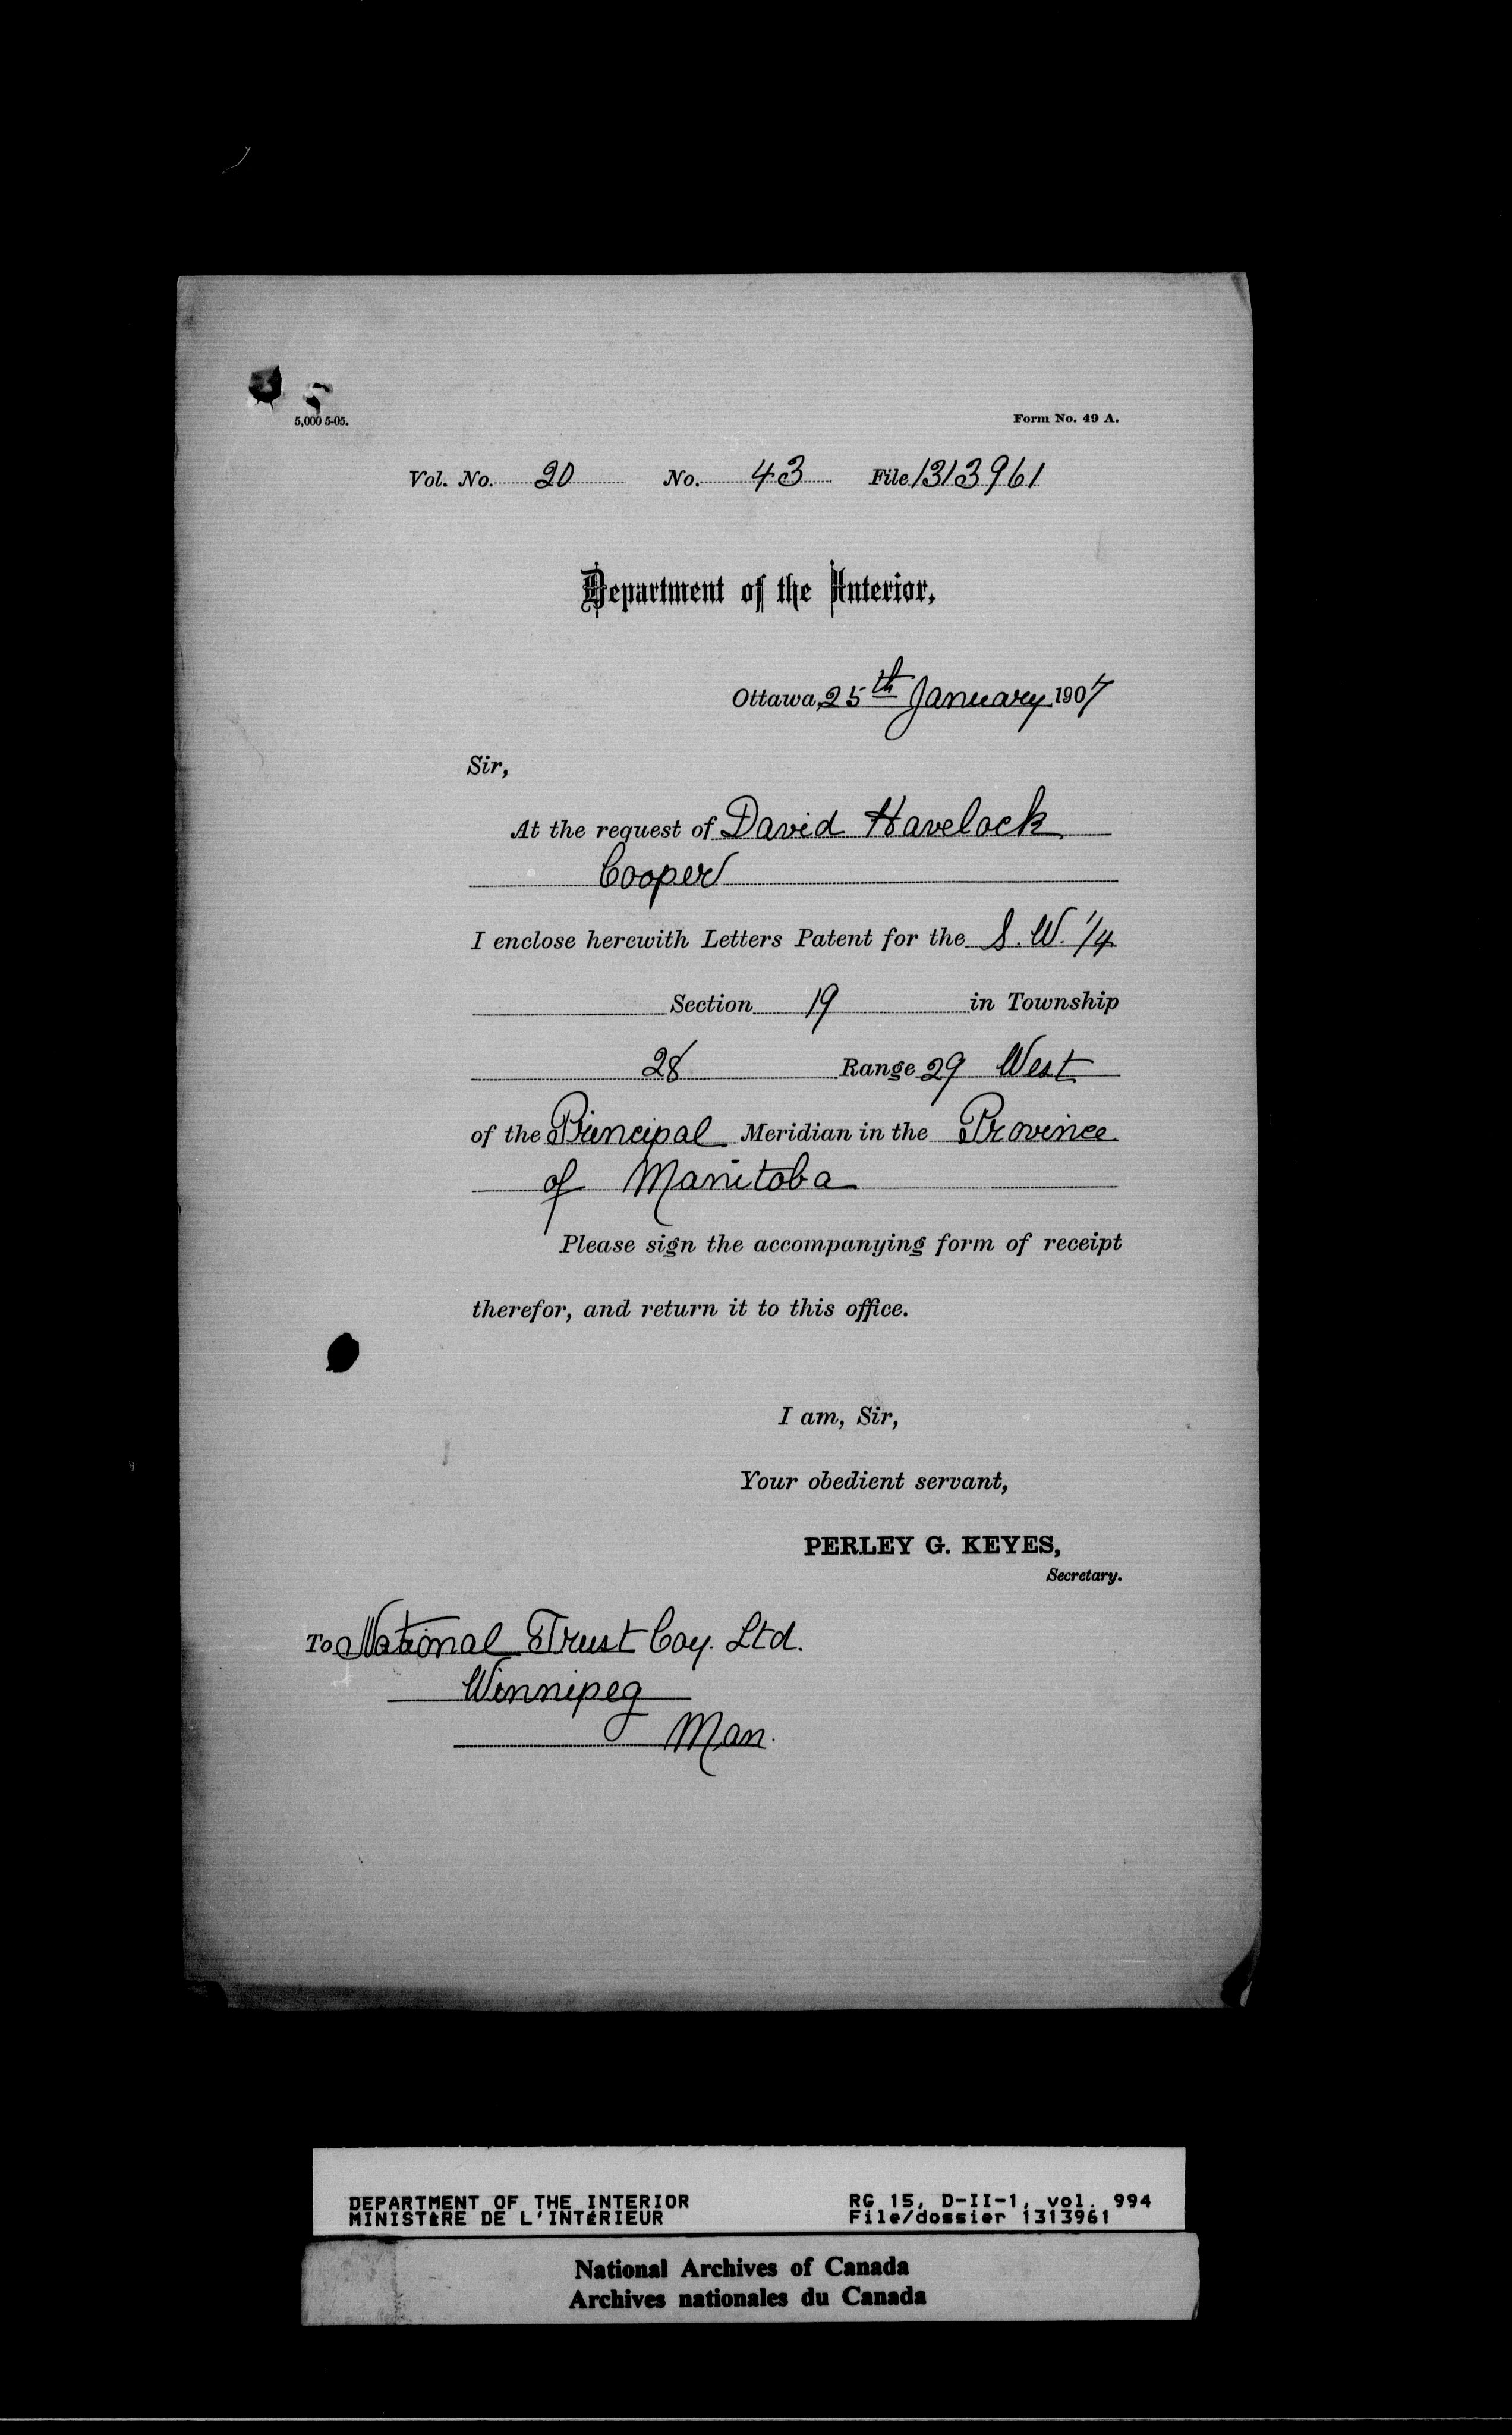 5,000 5-05.
Form No. 49 A.
Vol. No. 20 No. 43 File 1313961
Department of the Interior,
Ottawa, 25th January 1907
Sir,
At the request of David Havelock
Cooper
I enclose herewith Letters Patent for the S. W. 1/4
Section 19 in Township
28 Range 29 West
of the Principal Meridian in the Province
of Manitoba
Please sign the accompanying form of receipt
therefor, and return it to this office.
I am, Sir,
Your obedient servant,
PERLEY G. KEYES,
Secretary.
To National Trust Coy. Ltd.
Winnipeg
Man.
DEPARTMENT OF THE INTERIOR RG 15, D-II-1, vol. 994
MINISTÈRE DE L'INTÉRIEUR File/dossier 1313961
National Archives of Canada
Archives nationales du Canada